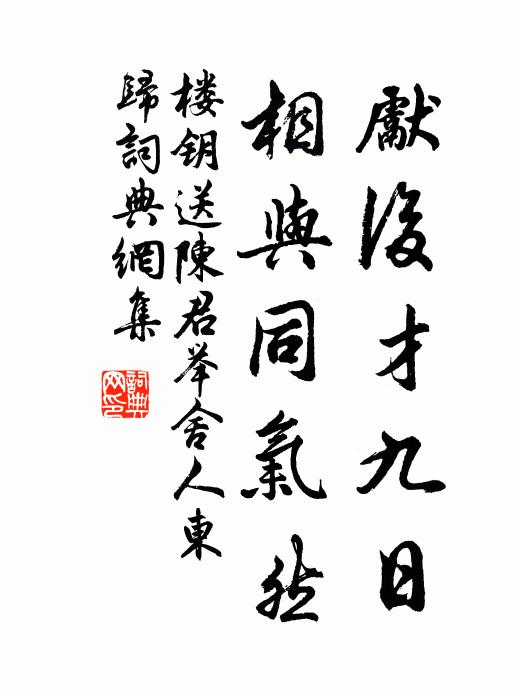 獻後才九日
相與同氣然
楼钥送陳君举舍人東
歸詞典網集
詞典
网印